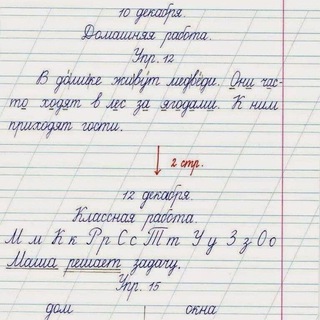 10 декабря.
Домашняя работа.
Упр. 12
В домике живут медведи. Они час-
то ходят в лес за ягодами. К ним
приходят гости.
2 стр.
12 декабря.
Классная работа.
М м К к Р р С с Т т У у З з О о
Маша решает задачу.
Упр. 15
дом окна